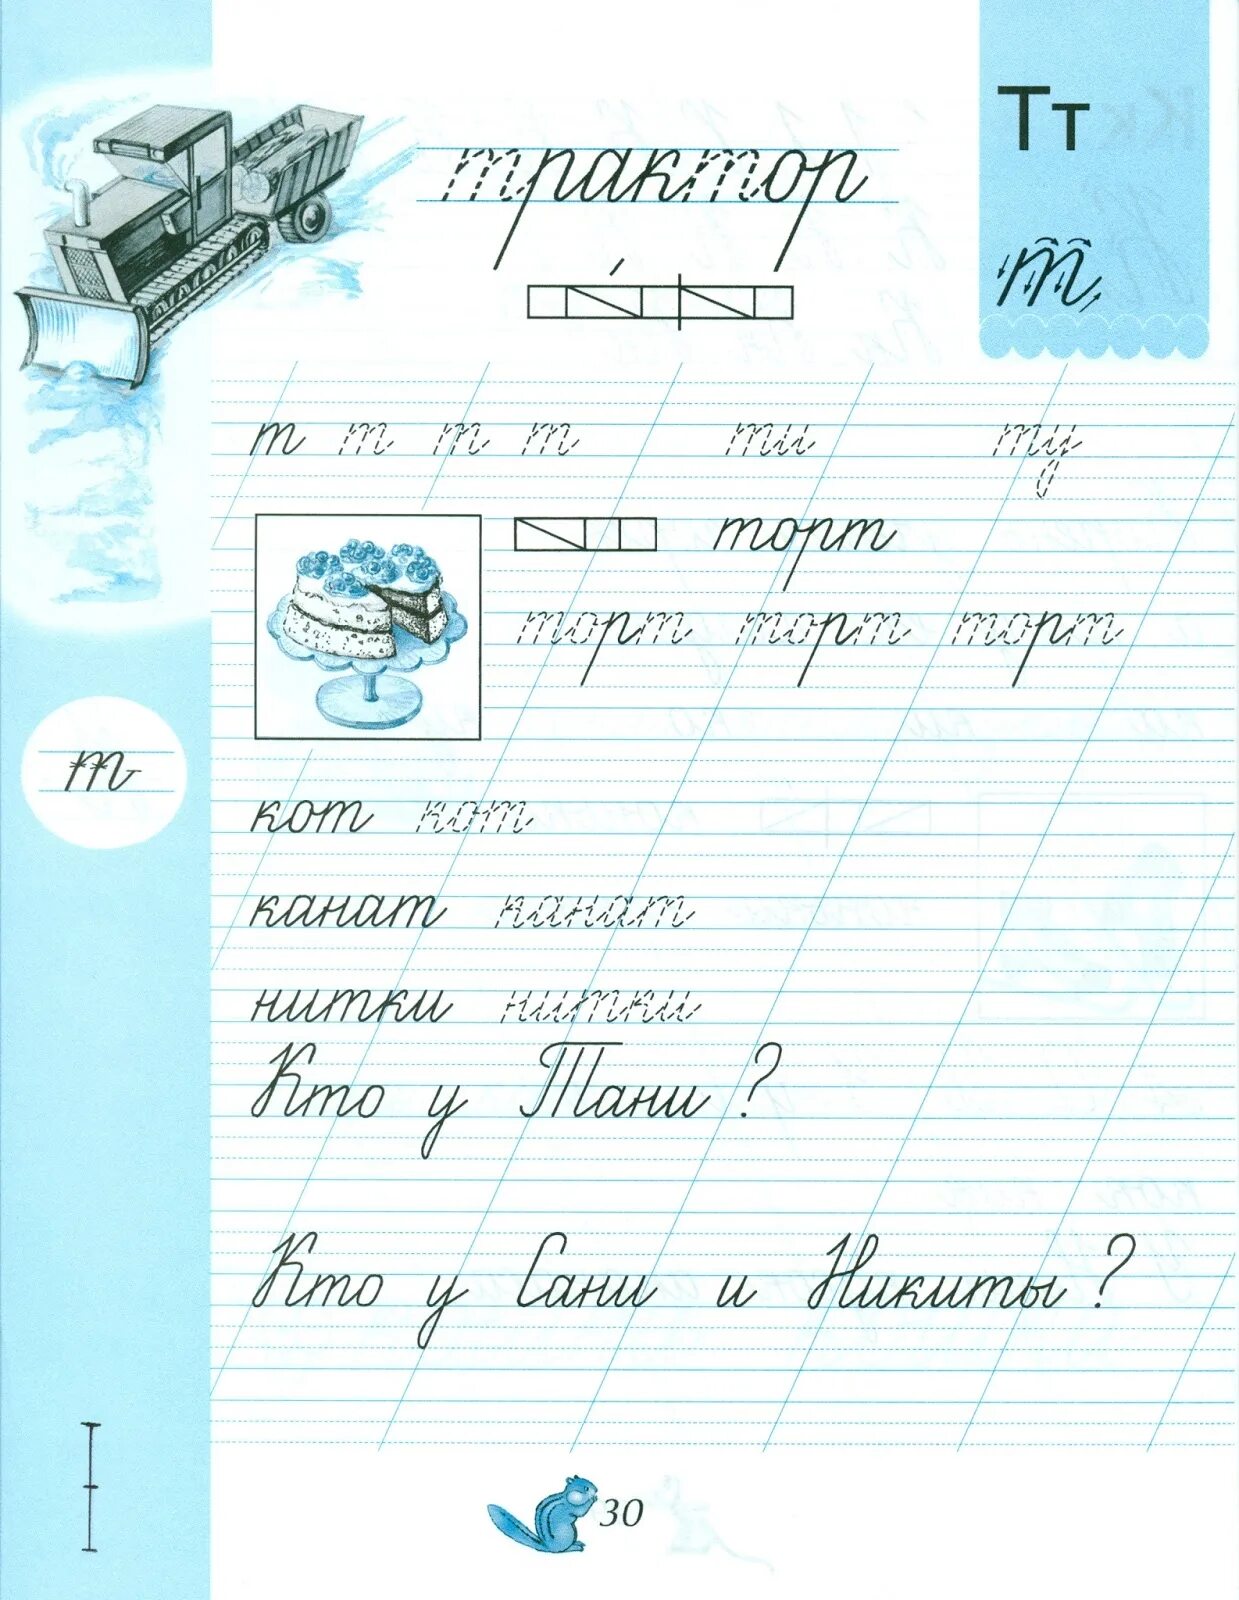 Тт
трактор
т
т т т т ти ту
торт
торт торт торт
т
кот кот
канат канат
нитки нитки
Кто у Тани ?
Кто у Сани и Никиты ?
30